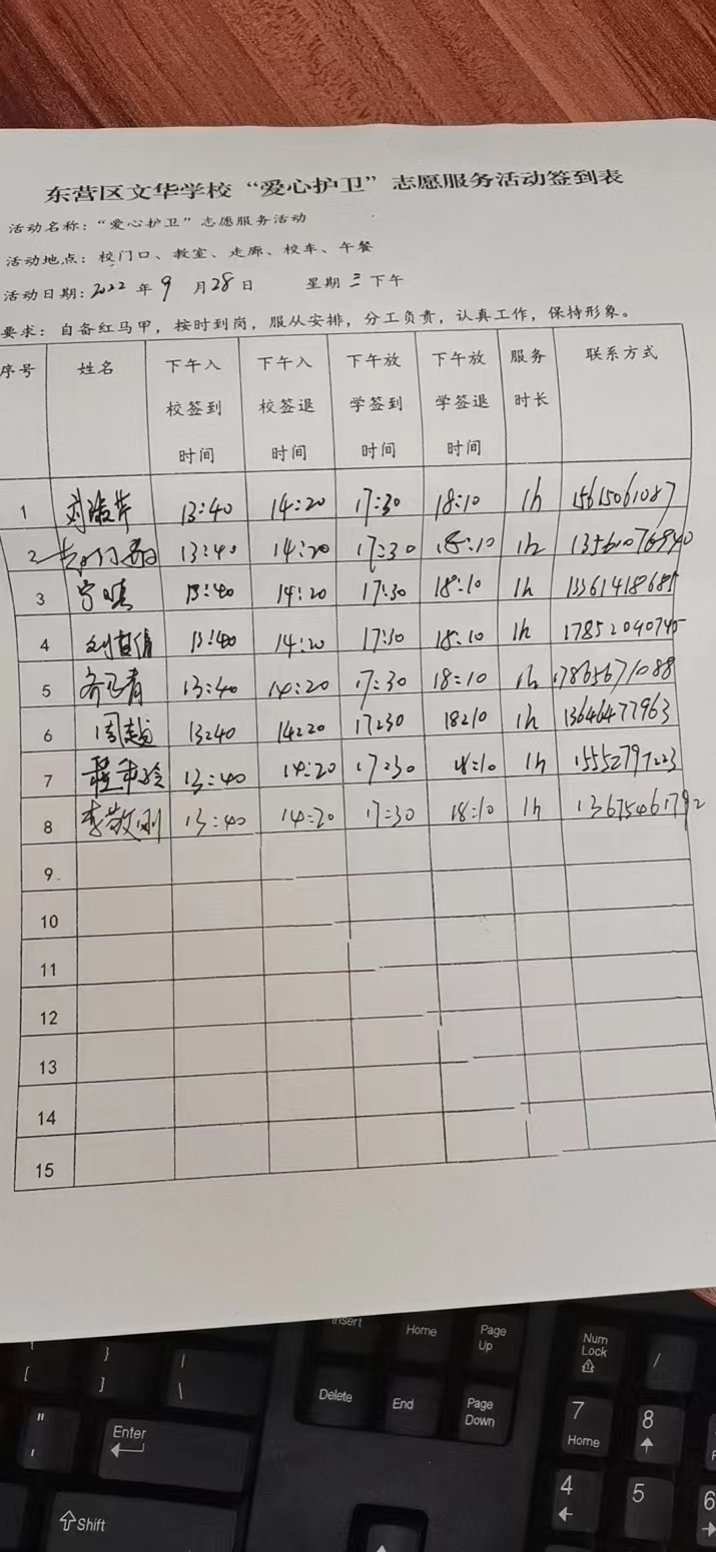 东营区文华学校“爱心护卫”志愿服务活动签到表
活动名称：“爱心护卫”志愿服务活动
活动地点：校门口、教室、走廊、校车、午餐
活动日期：2022 年 9 月 28 日 星期 三 下午
要求：自备红马甲，按时到岗，服从安排，分工负责，认真工作，保持形象。
序号 姓名 下午入校签到时间 下午入校签退时间 下午放学签到时间 下午放学签退时间 服务时长 联系方式
1 13:40 14:20 17:30 18:10 1h 15615061087
2 13:40 14:20 17:30 18:10 1h
3 13:40 14:20 17:30 18:10 1h
4 13:40 14:20 17:10 18:10 1h 17852040745
5 13:40 14:20 17:30 18:10 1h 17865671088
6 周越 13:40 14:20 17:30 18:10 1h 13646477963
7 13:40 14:20 17:30 18:10 1h 15552797223
8 李敬刚 13:40 14:20 17:30 18:10 1h 13675461792
9
10
11
12
13
14
15
Insert Home Page Up Num Lock /
{ [ } ] | \
Delete End Page Down 7 Home 8
" ' Enter
4 5 6
Shift